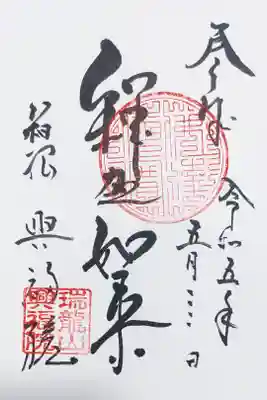 奉拝
令和五年
五月 日
釋迦如来
箱根 興福院
瑞龍山
興福院